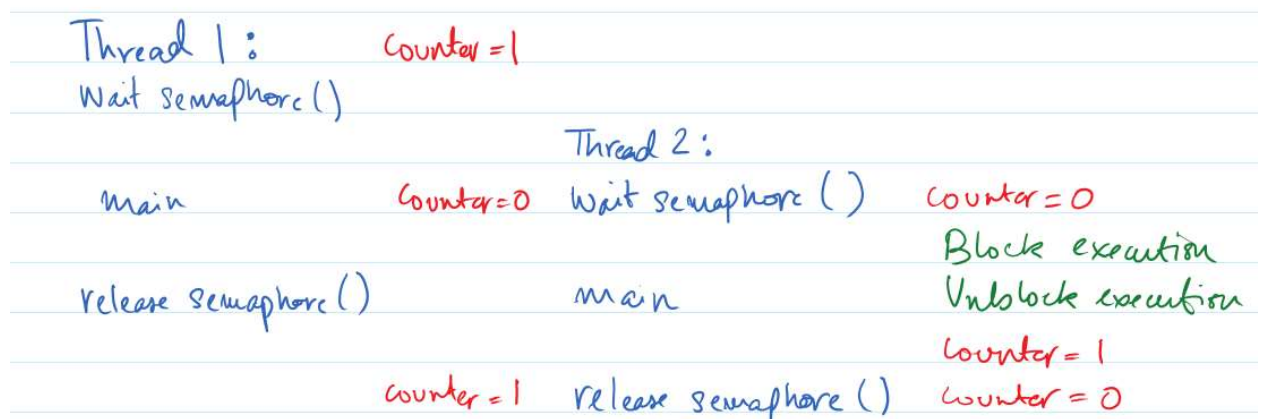 Thread 1: counter=1
Wait semaphore()
Thread 2:
main counter=0 wait semaphore() counter=0
Block execution
release semaphore() main Unblock execution
counter=1
counter=1 release semaphore() counter=0